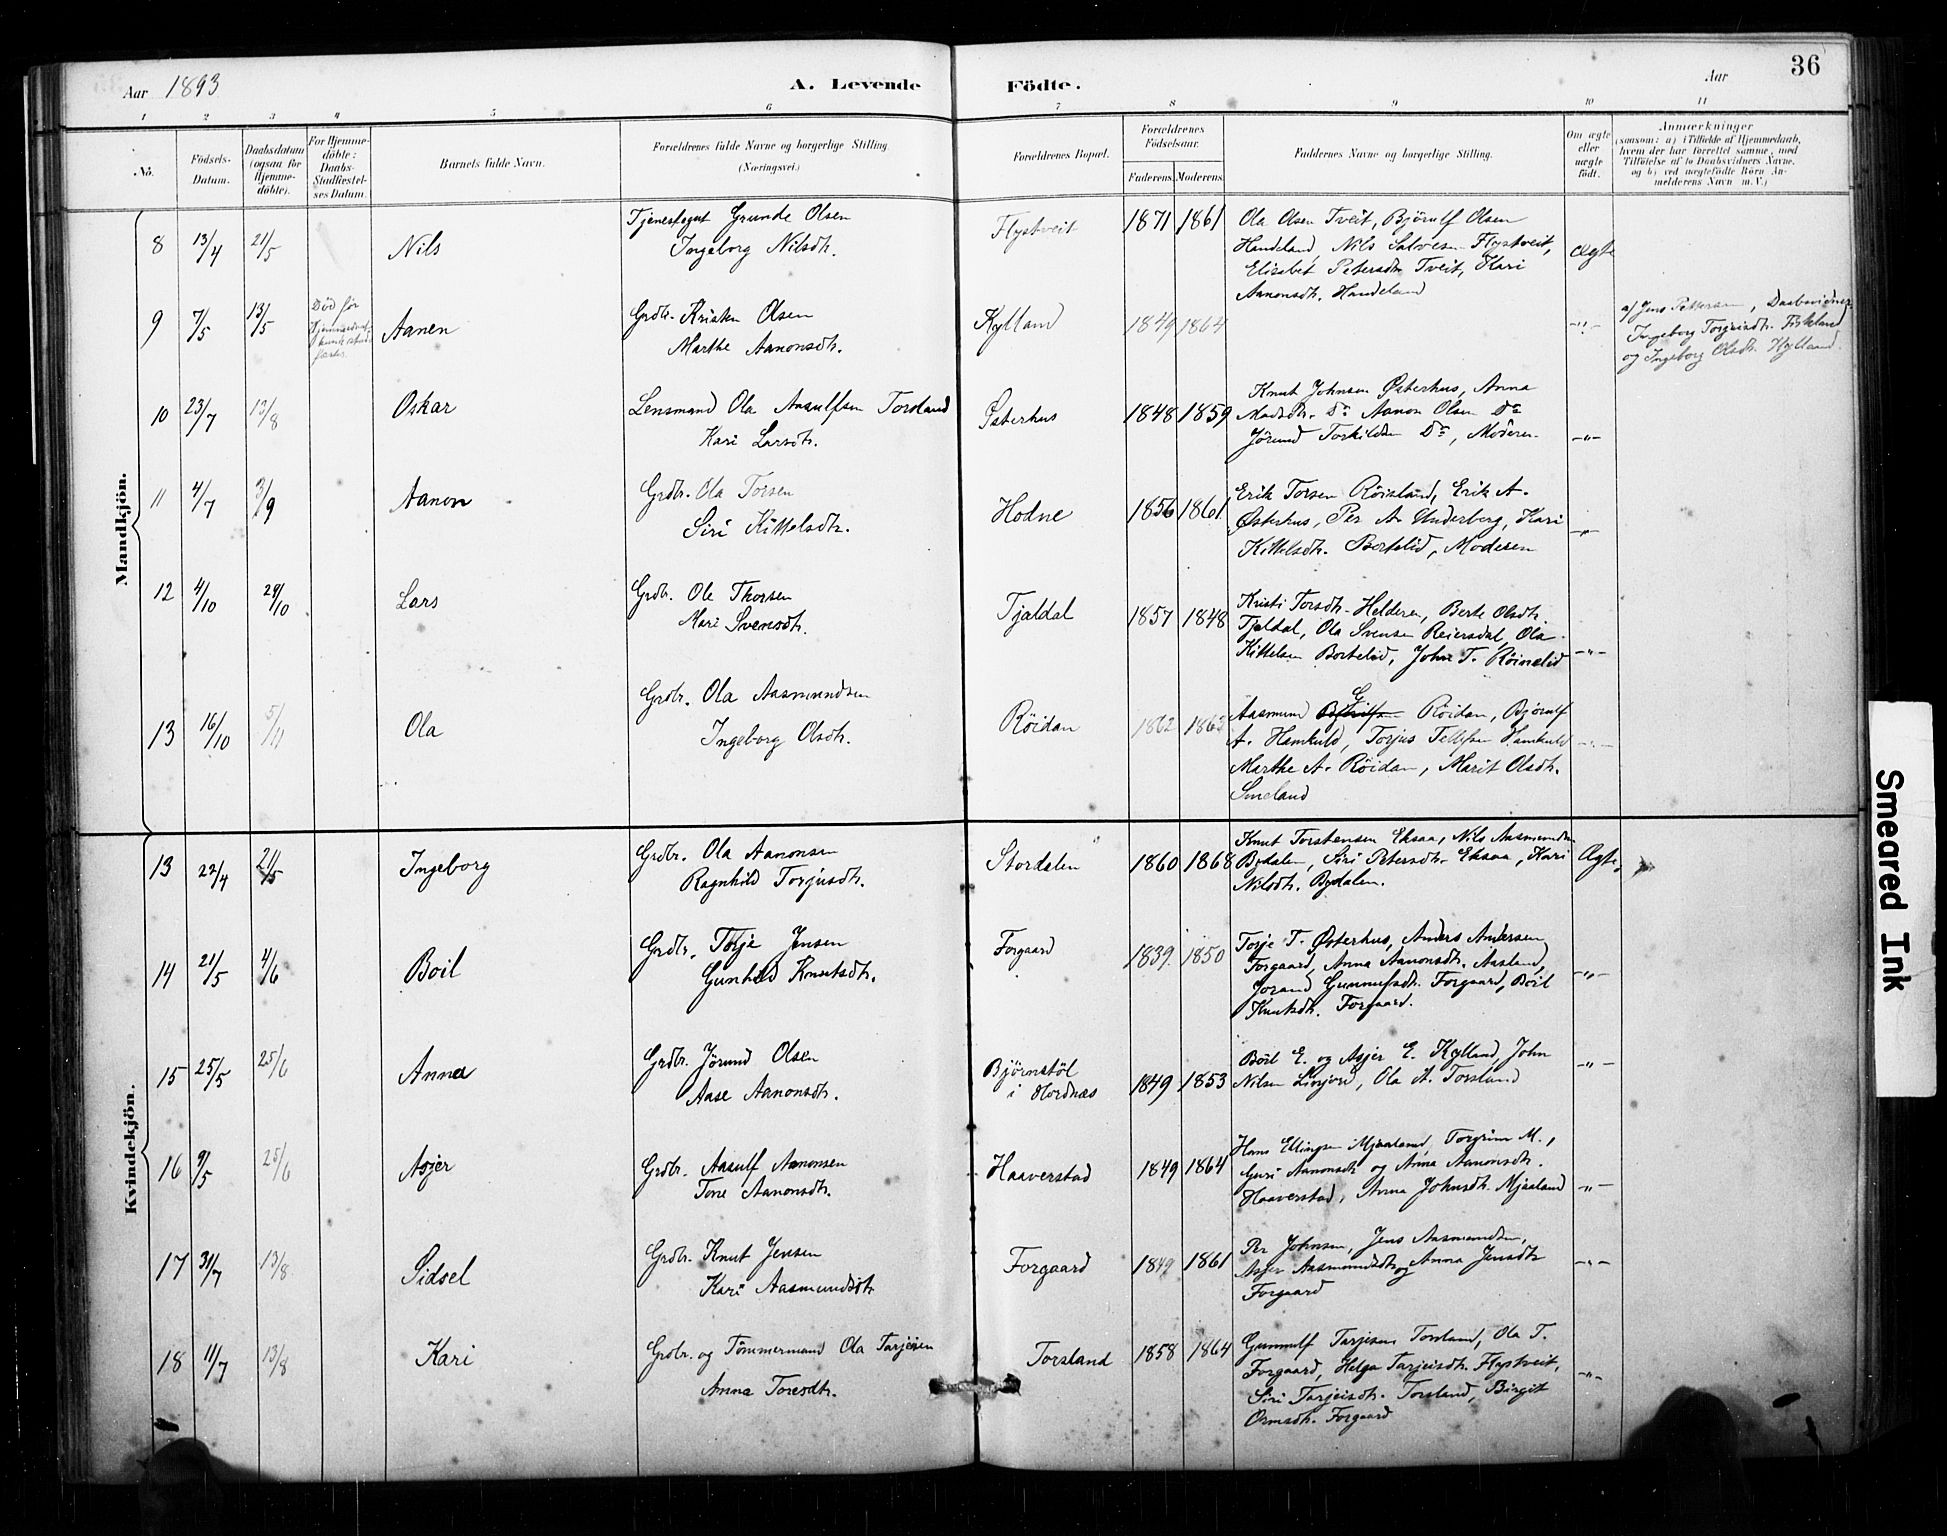 Aar 1893
A. Levende Födte.
Aar
36
1 2 3 4 5 6 7 8 9 10 11
No.
Födsels-Datum.
Daabsdatum (ogsaa for Hjemme-döbte).
For Hjemme-döbte: Daabs-Stadfæstel-ses Datum.
Barnets fulde Navn.
Forældrenes fulde Navne og borgerlige Stilling. (Næringsvei.)
Forældrenes Bopæl.
Forældrenes Födselsaar.
Faderens. Moderens.
Faddernes Navne og borgerlige Stilling.
Om ægte eller uægte födt.
Anmærkninger
(saasom: a) i Tilfælde af Hjemmedaab,
hvem der har forrettet samme, med
Tilföielse af to Daabsvidners Navne,
og b) ved uægtefödte Börn An-
melderens Navn m. V.)
Mandkjön.
8 13/4 21/5 Nils
Tjenestegut Grunde Olsen
Ingeborg Nilsdtr.
Flystveit 1871 1861
Ola Olsen Tveit, Björulf Olsen
Handeland, Nils Salvesen Flystveit,
Elisabet Petersdtr Tveit, Kari
Aanonsdtr. Handeland
Ægte
9 7/5 13/5 Død før
Aanen
Grdbr. Kristen Olsen
Marthe Aanonsdtr.
Kylland 1849 1864
-"-
af Jens Pettersen, Daabsvidner
Ingeborg Torgeisdtr. Fiskeland
og Ingeborg Olsdtr. Kylland.
10 23/7 13/8 Oskar
Lensmand Ola Aasulfsen Torsland
Kari Larsdtr.
Østerhus 1848 1859
Knut Johnsen Østerhus, Anna
Madsdtr. Do Aanon Olsen Do
Jörund Torkildsen Do, Moderen
-"-
11 4/7 3/9 Aanon
Grdbr. Ola Torsen
Siri Kittelsdtr.
Hodne 1856 1861
Erik Torsen Röisland, Erik A.
Østerhus, Per A. Underberg, Kari
Kittelsdtr. Bortelid, Moderen
-"-
12 4/10 29/10 Lars
Grdbr. Ole Thorsen
Mari Svensdtr.
Tjaldal 1857 1848
Kristi Torsdtr. Helderen, Berte Olsdtr.
Tjaldal, Ola Svensen Reiersdal, Ola
Kittelsen Bortelid, John T. Röinelid
-"-
13 16/10 5/11 Ola
Grdbr. Ola Aasmundsen
Ingeborg Olsdtr.
Röidan 1862 1863
Aasmund G. Röidan, Björulf
A. Hamkuld, Torjus Tellefsen Hamkuld
Marthe A. Röidan, Marit Olsdtr.
Smeland
-"-
Kvindekjön.
13 22/4 21/5 Ingeborg
Grdbr. Ola Aanonsen
Ragnhild Torjusdtr.
Stordalen 1860 1868
Knut Torstensen Eksaa, Nils Aasmundsen
Bydalen, Siri Petersdtr. Eksaa, Kari
Nilsdtr. Bydalen.
Ægte
14 21/5 4/6 Boil
Grdbr. Torje Jensen
Gunhild Knutsdtr.
Forgaard 1839 1850
Torje T. Østerhus, Anders Andersen
Forgaard, Anna Aanonsdtr. Aasland,
Jorand Gunnulfsdtr. Forgaard, Boil
Knutsdtr. Forgaard.
-"-
15 25/5 25/6 Anna
Grdbr. Jörund Olsen
Aase Aanonsdtr.
Björnstöl
i Hordnæs
1849 1853
Boil E. og Asjer E. Kylland, John
Nilsen Linjord, Ola A. Torsland
-"-
16 9/5 25/6 Asjer
Grdbr. Aasulf Aanonsen
Tone Aanonsdtr.
Haaverstad 1849 1864
Hans Ellingsen Mjaaland, Torgrim M.,
Guri Aanonsdtr og Anna Aanonsdtr.
Haaverstad, Anna Johnsdtr. Mjaaland
-"-
17 31/7 13/8 Sidsel
Grdbr. Knut Jensen
Kari Aasmundsdtr
Forgaard 1849 1861
Per Johnsen, Jens Aasmundsen,
Asjer Aasmundsdtr og Anna Jensdtr
Forgaard
-"-
18 11/7 13/8 Kari
Grdbr. og Tömmermand Ola Tarjeisen
Anna Toresdtr.
Torsland 1858 1864
Gunnulf Tarjeisen Torsland, Ola T.
Forgaard, Helga Tarjeisdtr. Flystveit,
Siri Tarjeisdtr. Torsland, Birgit
Ormsdtr. Forgaard
-"-
Smeared Ink